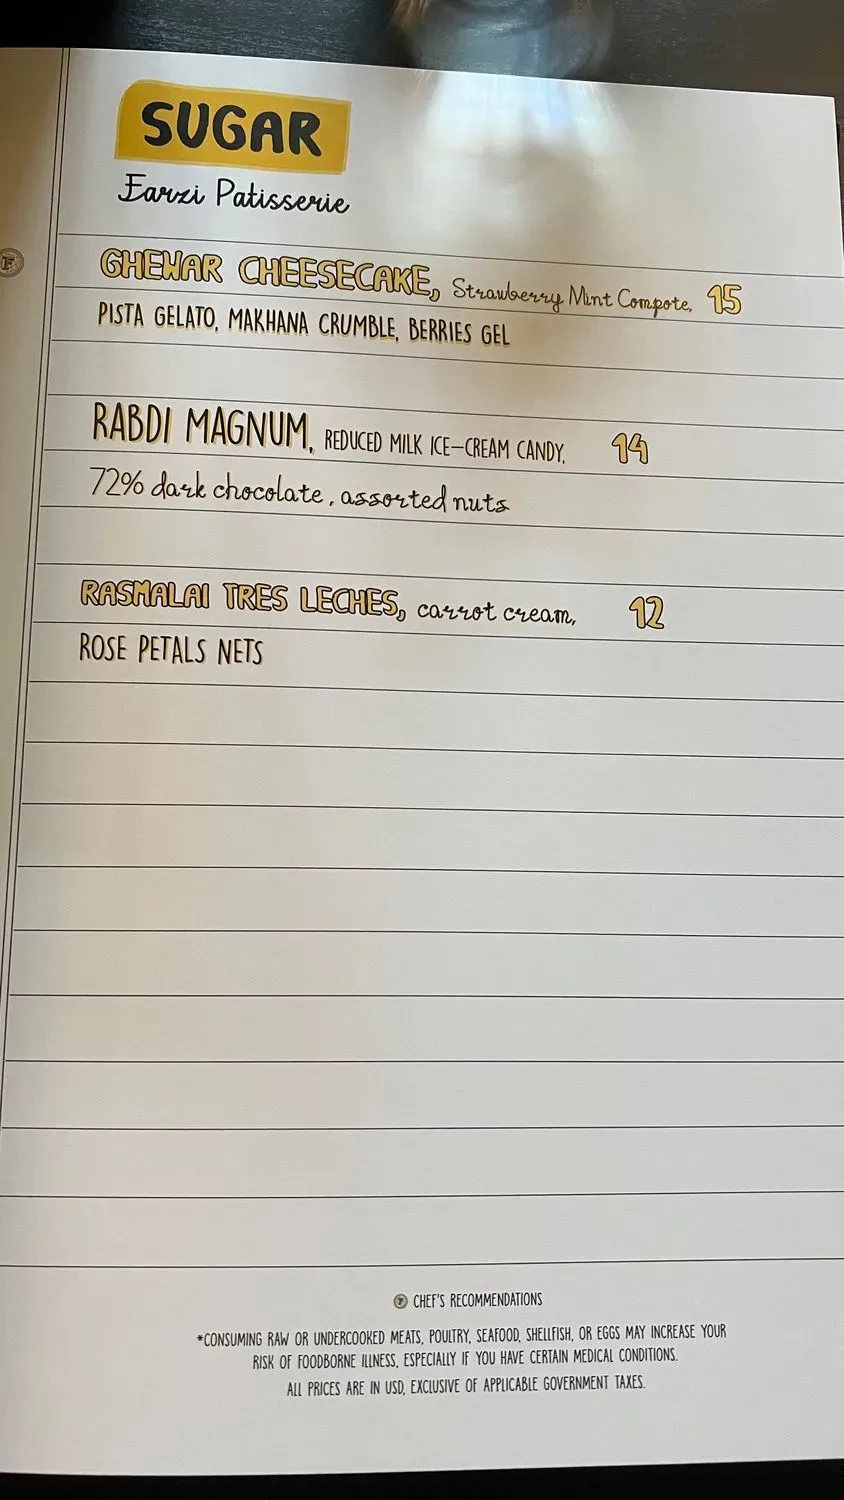 SUGAR
Farzi Patisserie
GHEWAR CHEESECAKE, Strawberry Mint Compote, 15
PISTA GELATO, MAKHANA CRUMBLE, BERRIES GEL
RABDI MAGNUM, REDUCED MILK ICE-CREAM CANDY, 14
72% dark chocolate, assorted nuts
RASMALAI TRES LECHES, carrot cream, 12
ROSE PETALS NETS
F
F CHEF'S RECOMMENDATIONS
*CONSUMING RAW OR UNDERCOOKED MEATS, POULTRY, SEAFOOD, SHELLFISH, OR EGGS MAY INCREASE YOUR
RISK OF FOODBORNE ILLNESS, ESPECIALLY IF YOU HAVE CERTAIN MEDICAL CONDITIONS.
ALL PRICES ARE IN USD, EXCLUSIVE OF APPLICABLE GOVERNMENT TAXES.